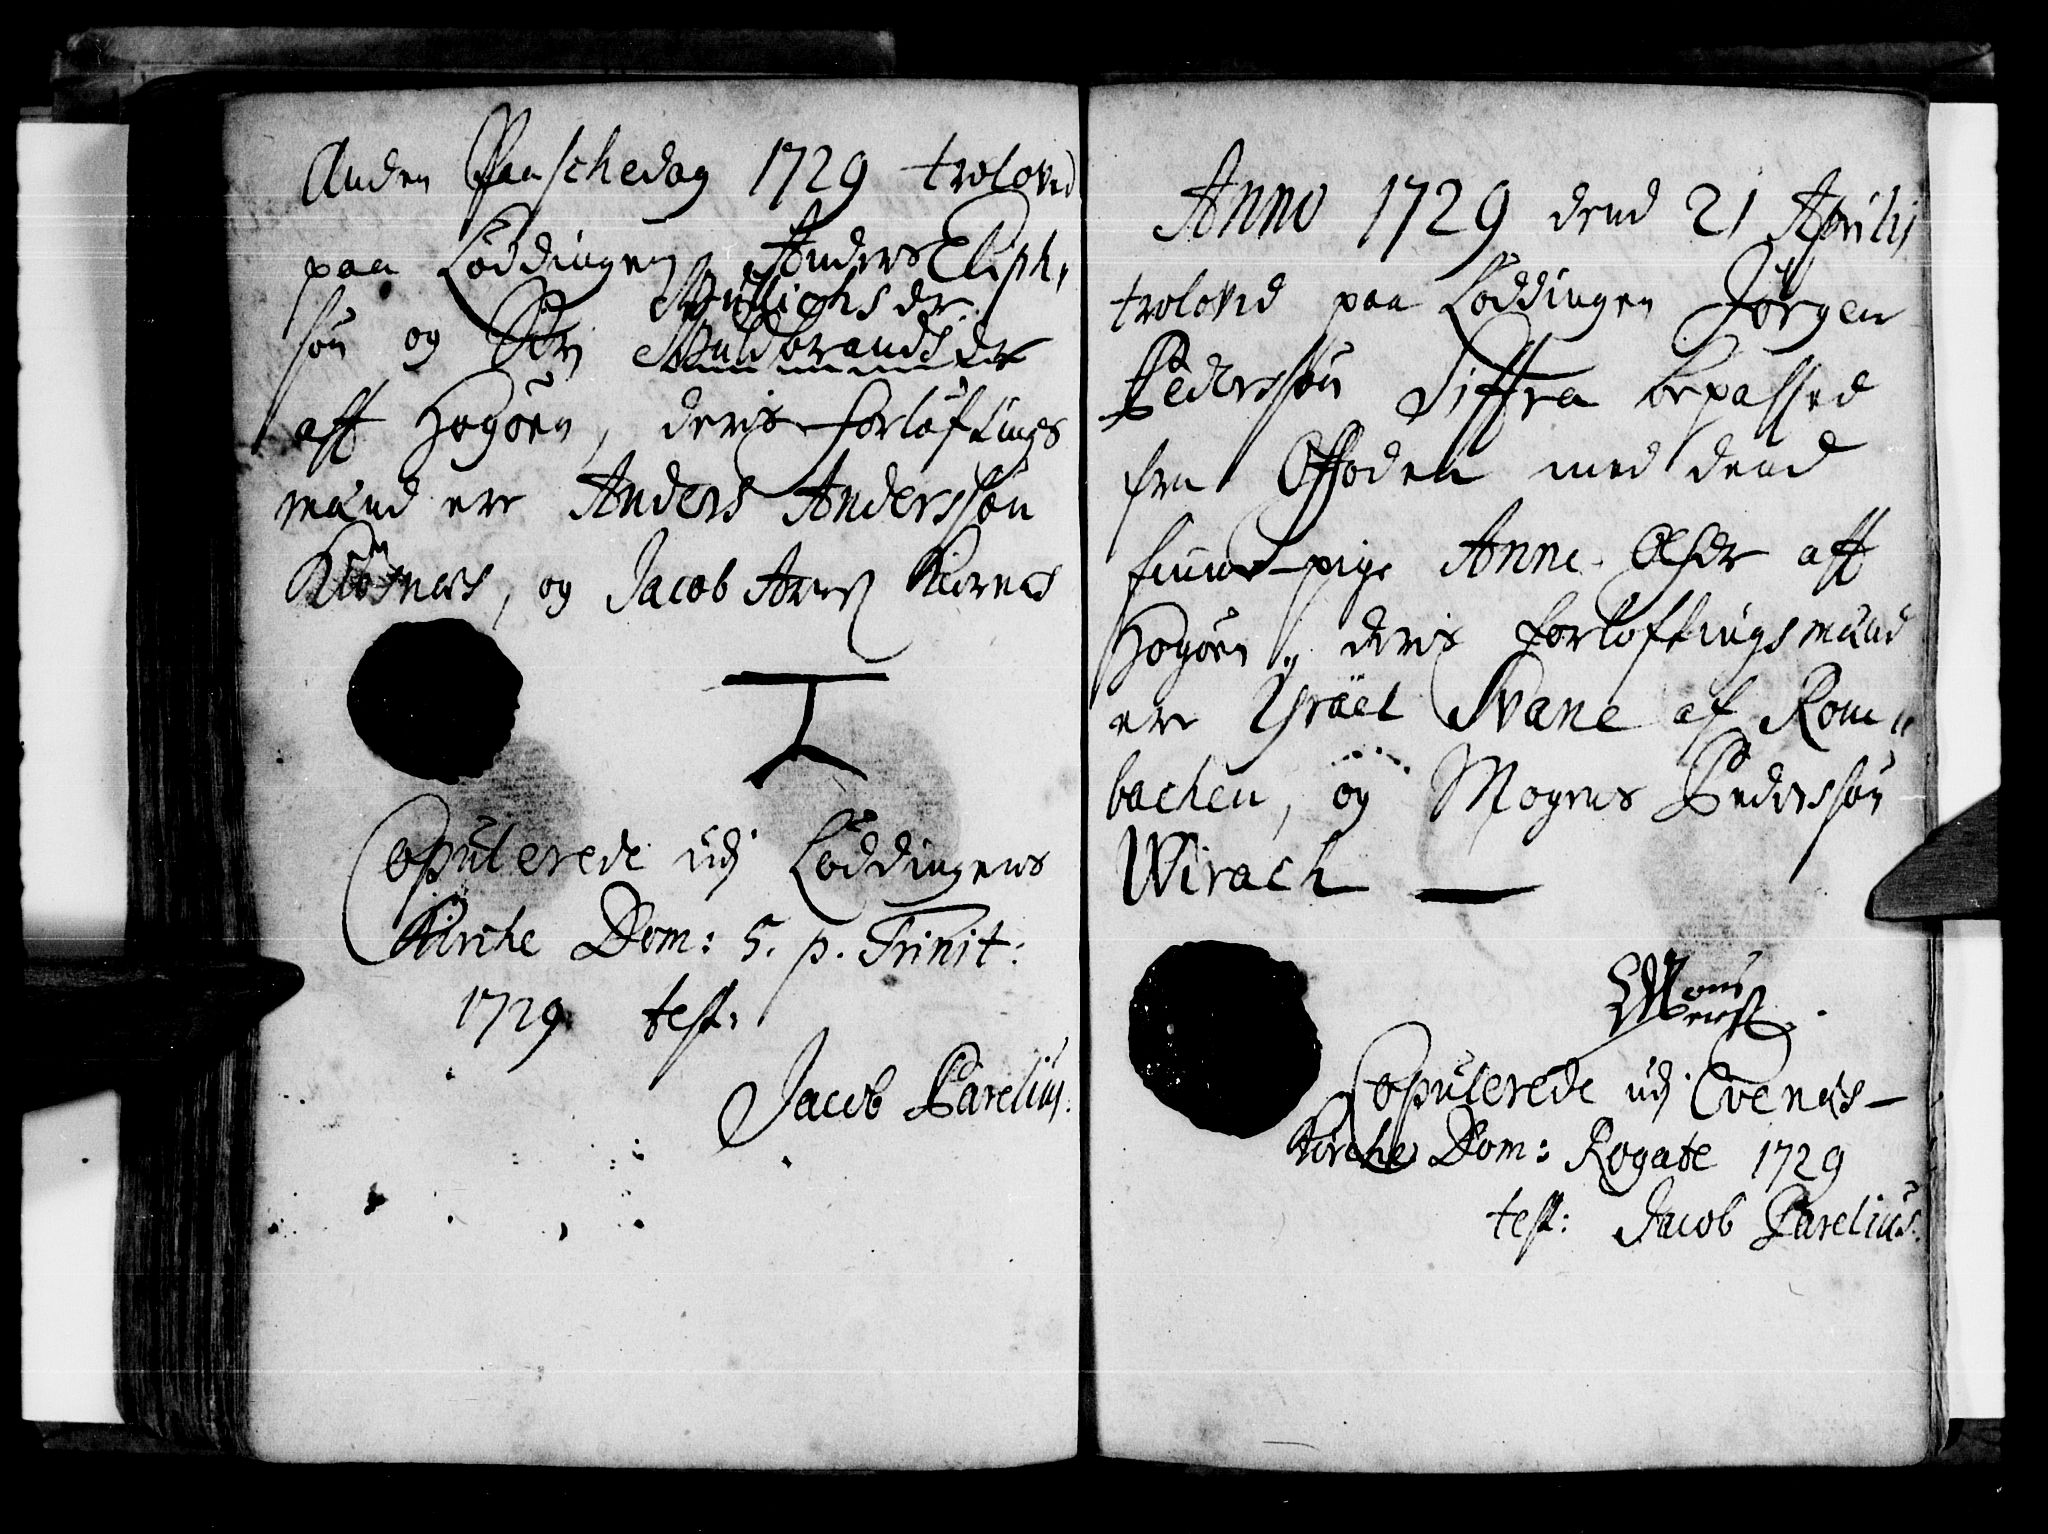 Anden Paaschedag 1729 trolovid
paa Loddingen Anders Eliph,
Mullichs dr.
søn og Siri Guldbrandsdr
aff Hogøen, deris forløftings
mænd ere Anders Andersson
Kløsnæs, og Jacob Kiernæs
Copulerede udj Loddingens
Kirche Dom: 5. p. Trinit:
1729 test:
Jacob Parelius.
Anno 1729 dend 21 Aprilis
trolovid paa Loddingen Jörgen
Pederssön Siffra bepassed
fra Offoden med dend
finne-pige Anne Olsdr aff
Hogøen, deris forloftingsmænd
ere Ysräel Svane af Rom"
bachen, og Mogens Pederssøn
Wirach —
Copulerede udj Evenæs-
Kirche Dom: Rogate 1729
test: Jacob Parelius.